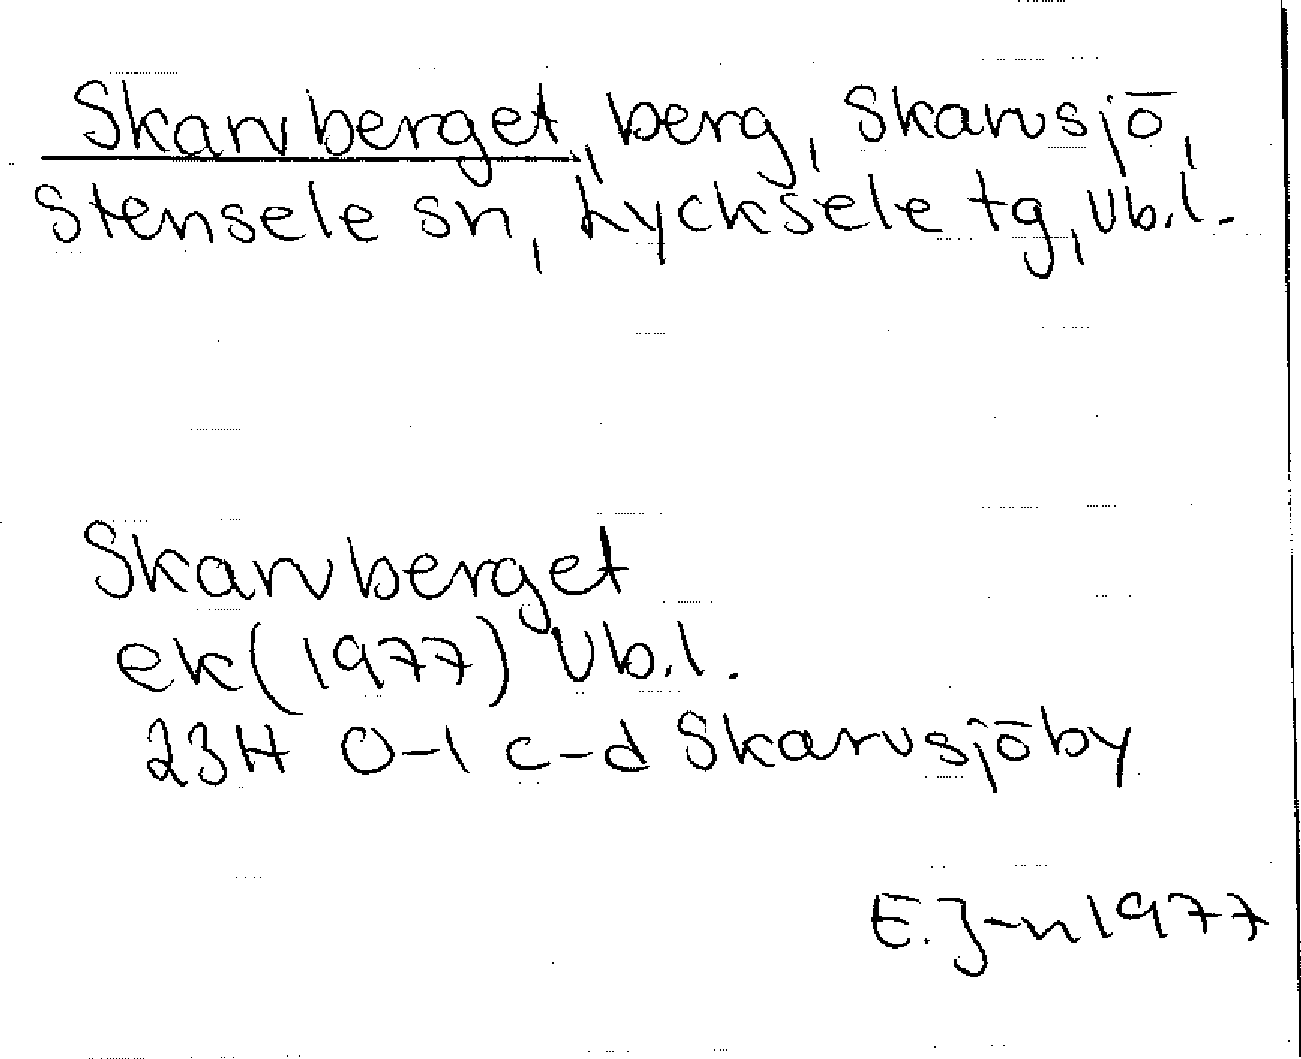 Skarvberget, berg, Skarvsjö,
Stensele sn, Lycksele tg, Vb.l.
Skarvberget
ek (1977) Vb.l.
23H 0-1 c-d Skarvsjöby
E.J-n 1977